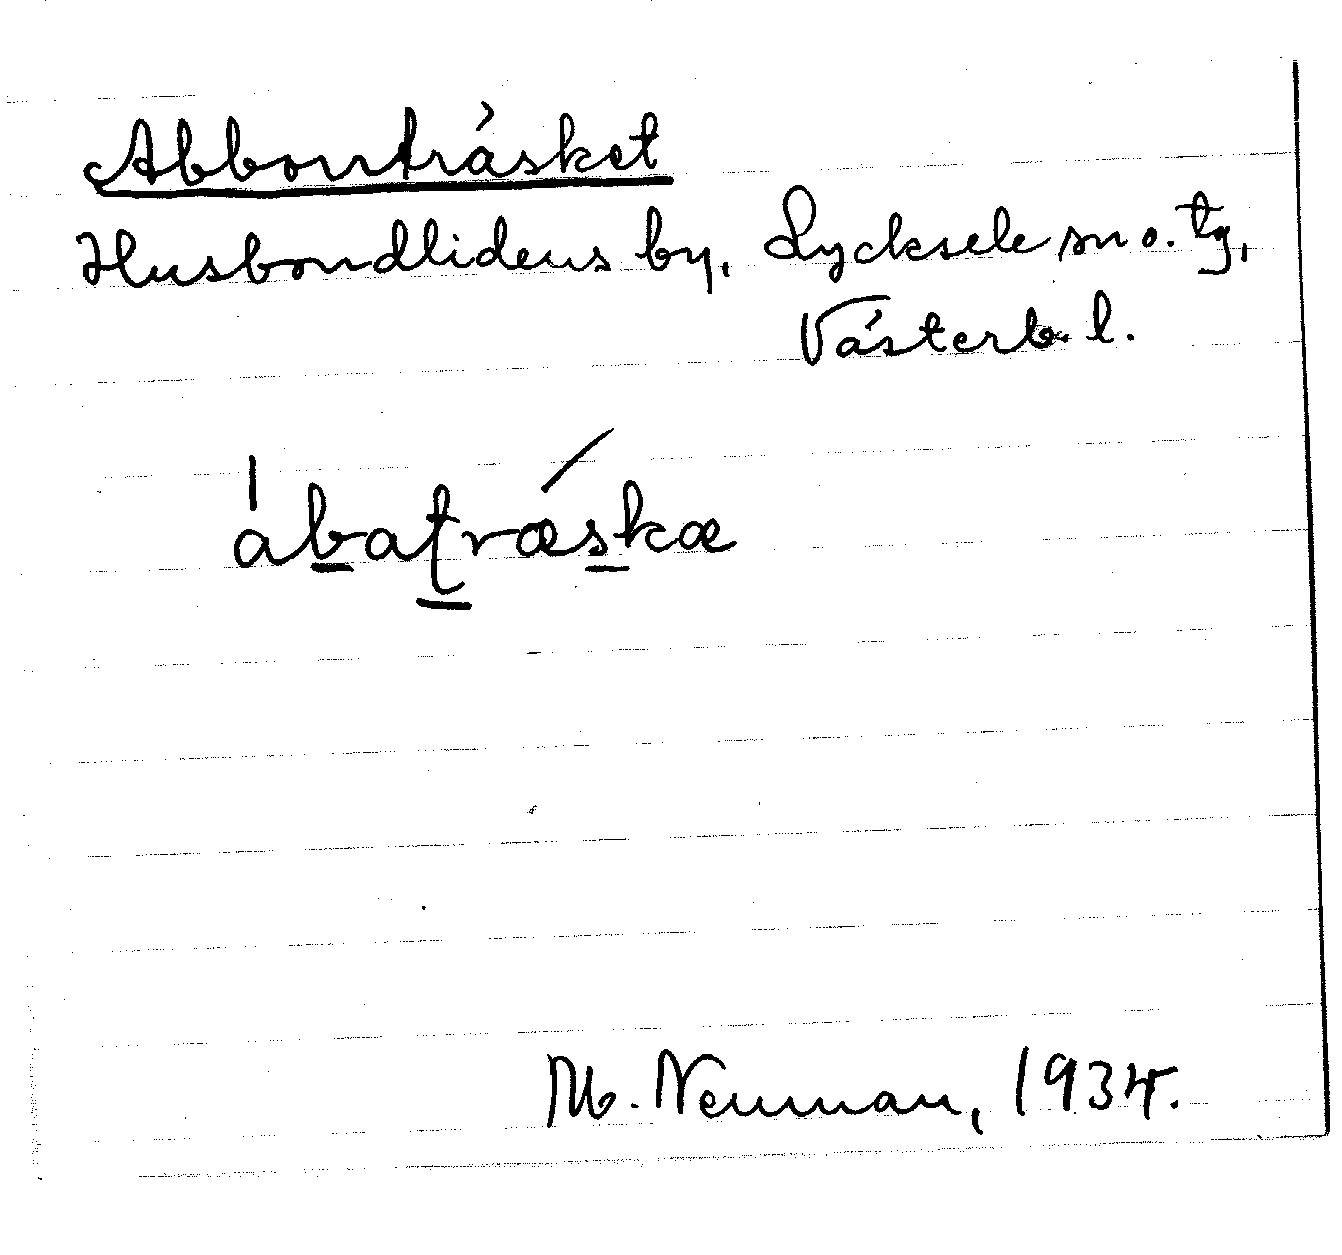 Abborrträsket
Husbondlidens by, Lycksele sn o. tg,
Västerb. l.
àbaţræ´skæ
M. Neuman, 1934.